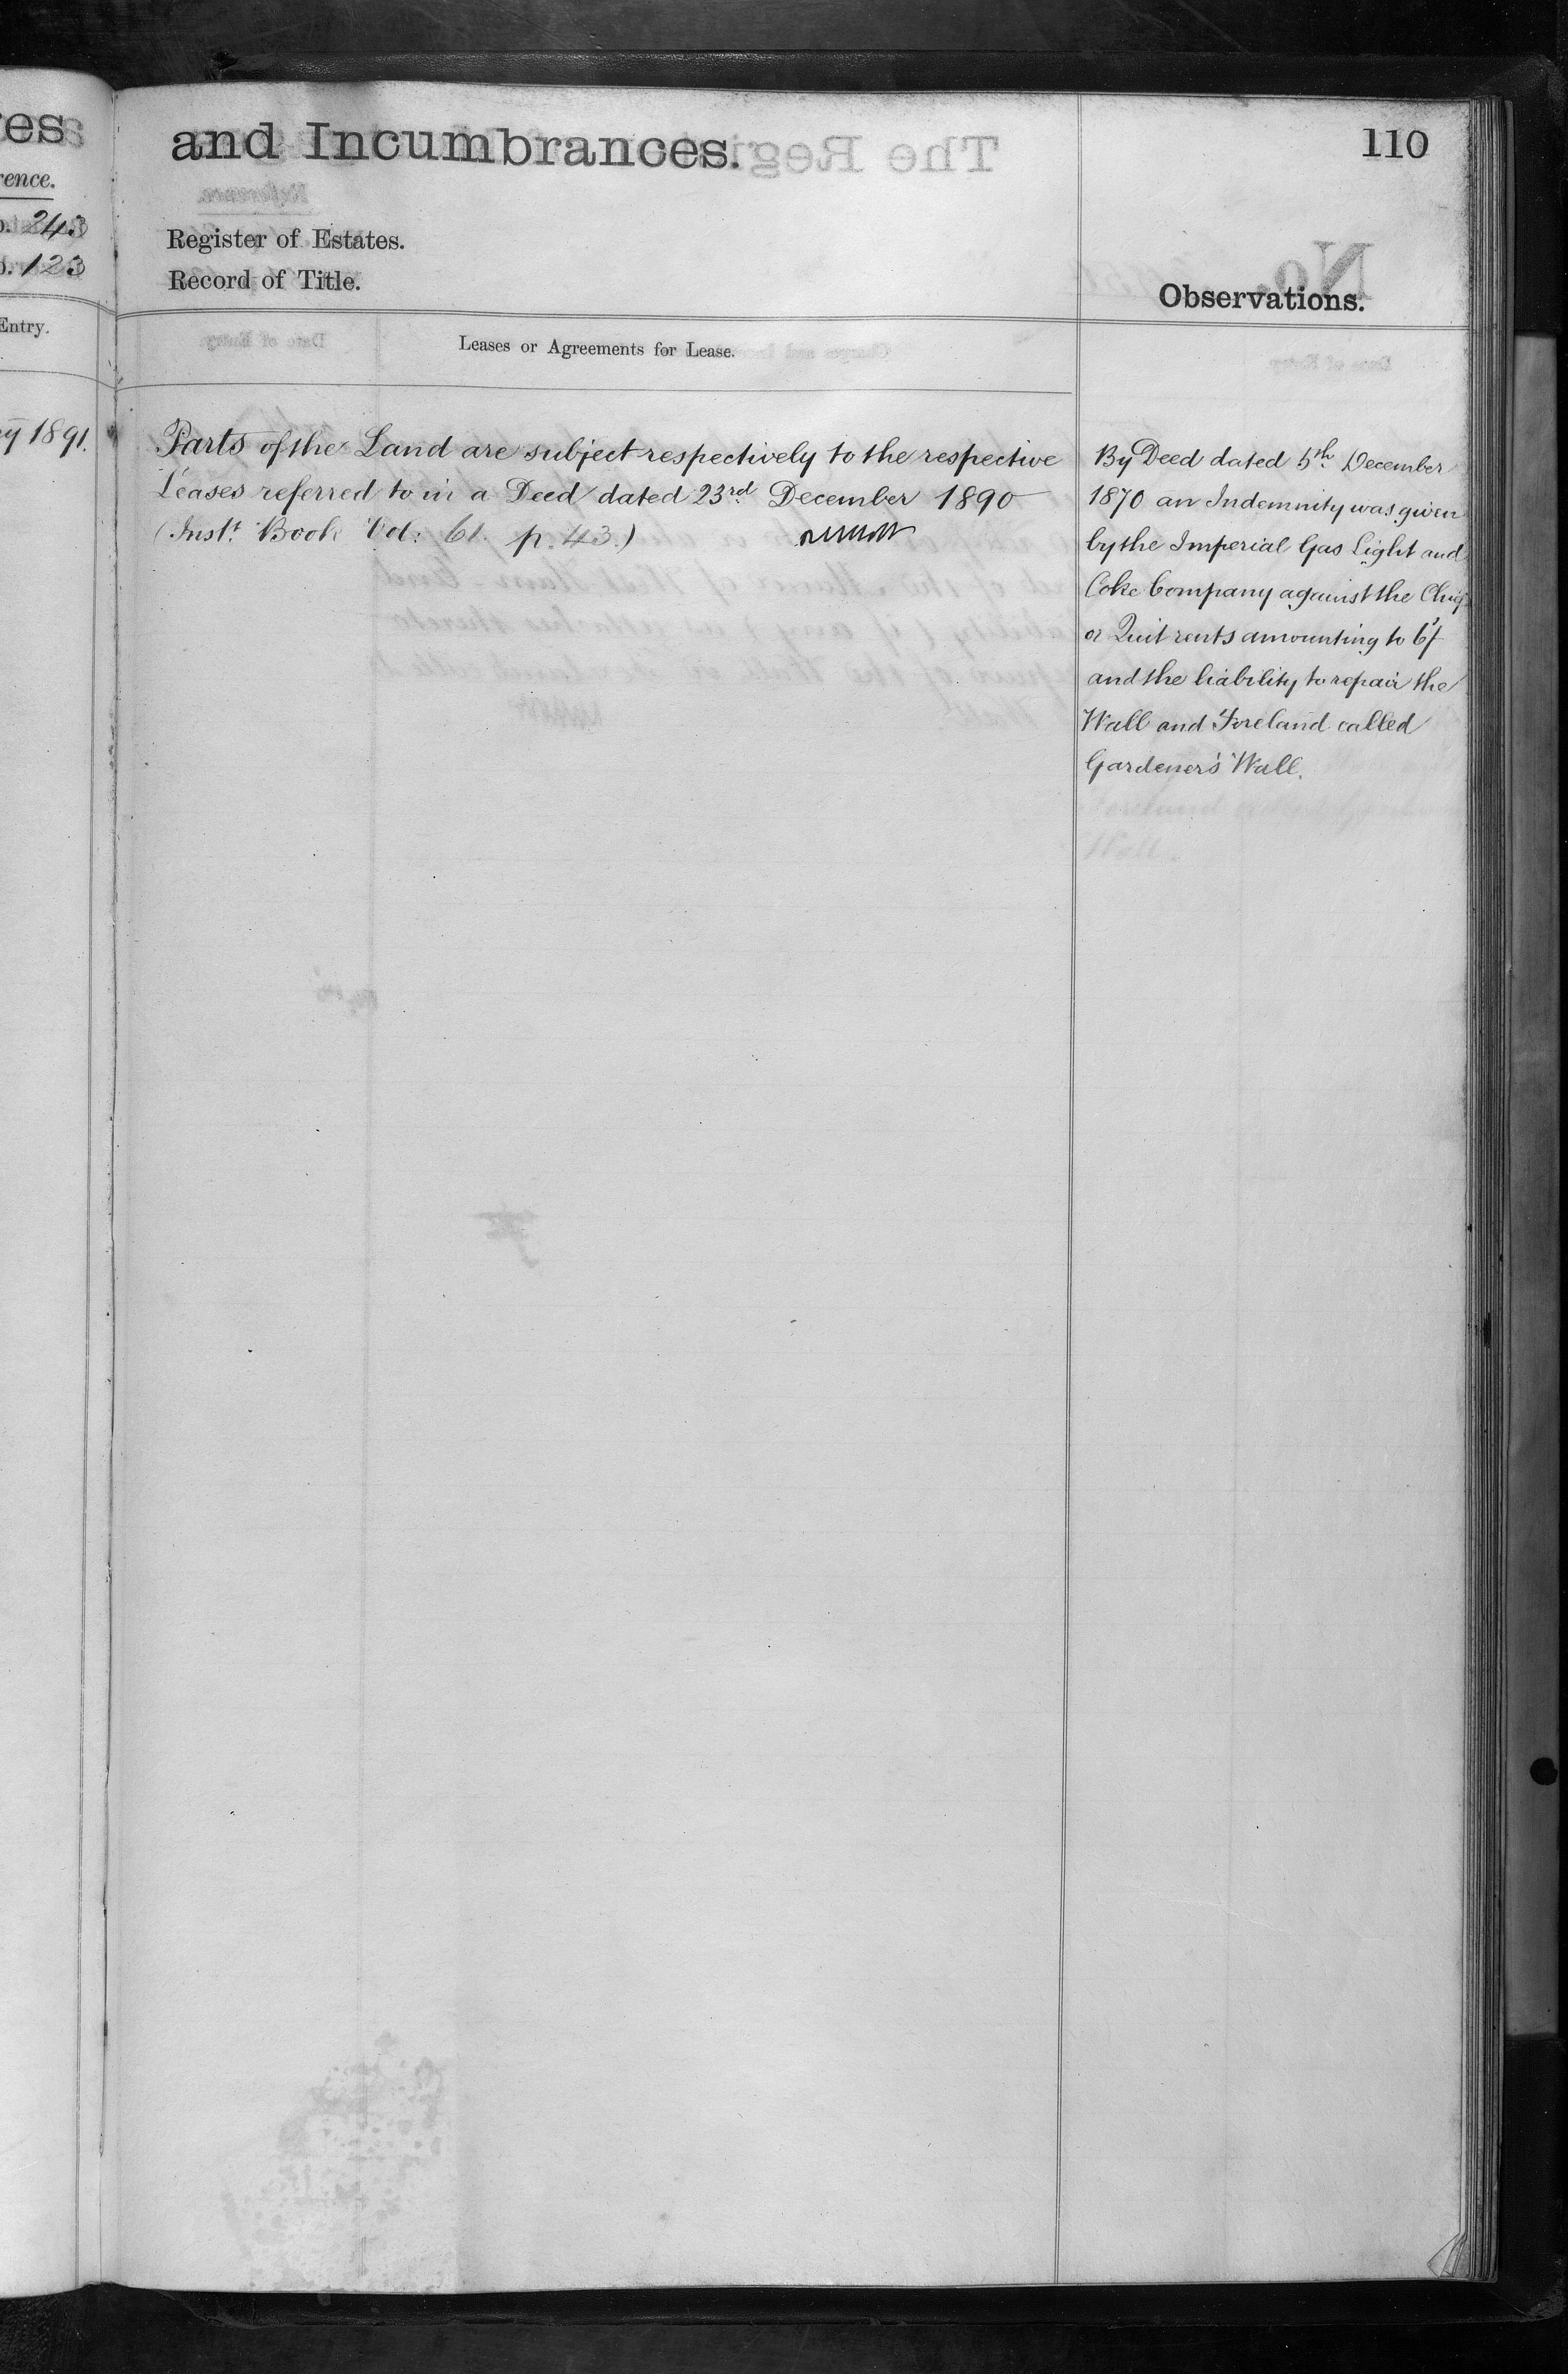 es
and Incumbrances.
110
rence.
o. 243
o. 123
Register of Estates.
Record of Title.
Observations.
Entry.
Leases or Agreements for Lease.
1891.
Parts of the Land are subject respectively to the respective
Leases referred to in a Deed dated 23rd December 1890
(Inst. Book Vol: 61. p. 43.)
By Deed dated 5th December
1870 an Indemnity was given
by the Imperial Gas Light and
Coke Company against the Chief
or Quit rents amounting to
and the liability to repair the
Wall and Foreland called
Gardener's Wall.